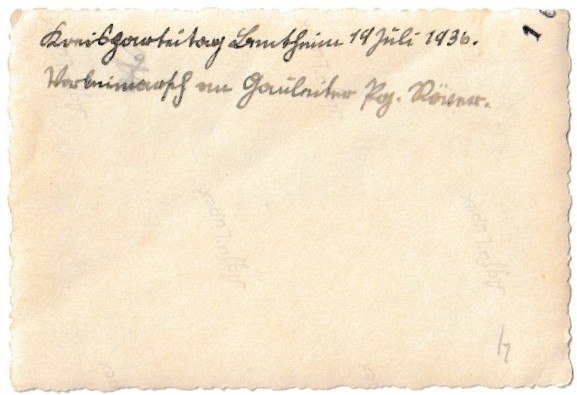 Kreisparteitag Bentheim 19 Juli 1936.
Vorbeimarsch am Gauleiter Pg. Röver.